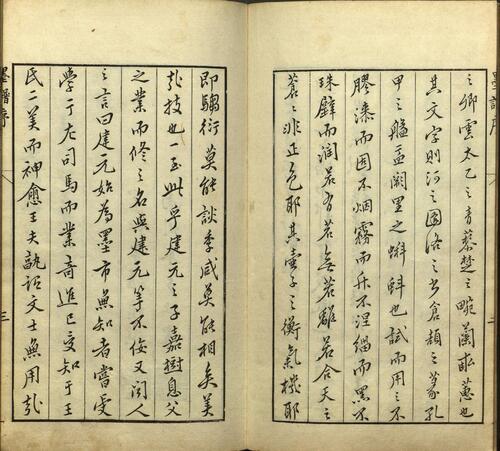 之卿雲太乙之青藜楚之畹蘭畝蕙也
其文字則河之圖洛之書倉頡之篆孔
甲之盤盂闕里之蝌蚪也試而用之不
膠漆而固不烟霧而升不涅緇而黑不
珠璧而潤若有若無若離若合天之
蒼蒼非正色耶其壺子之衡氣機耶
即騶衍莫能談季咸莫能相矣美
哉技也一至此乎建元之子嘉樹息父
之業而修之名與建元等不佞又聞人
之言曰建元始為墨市無知者嘗受
學于左司馬而業奇進已受知于王
民二美而神愈王夫執詔文士無用哉
墨譜序
三